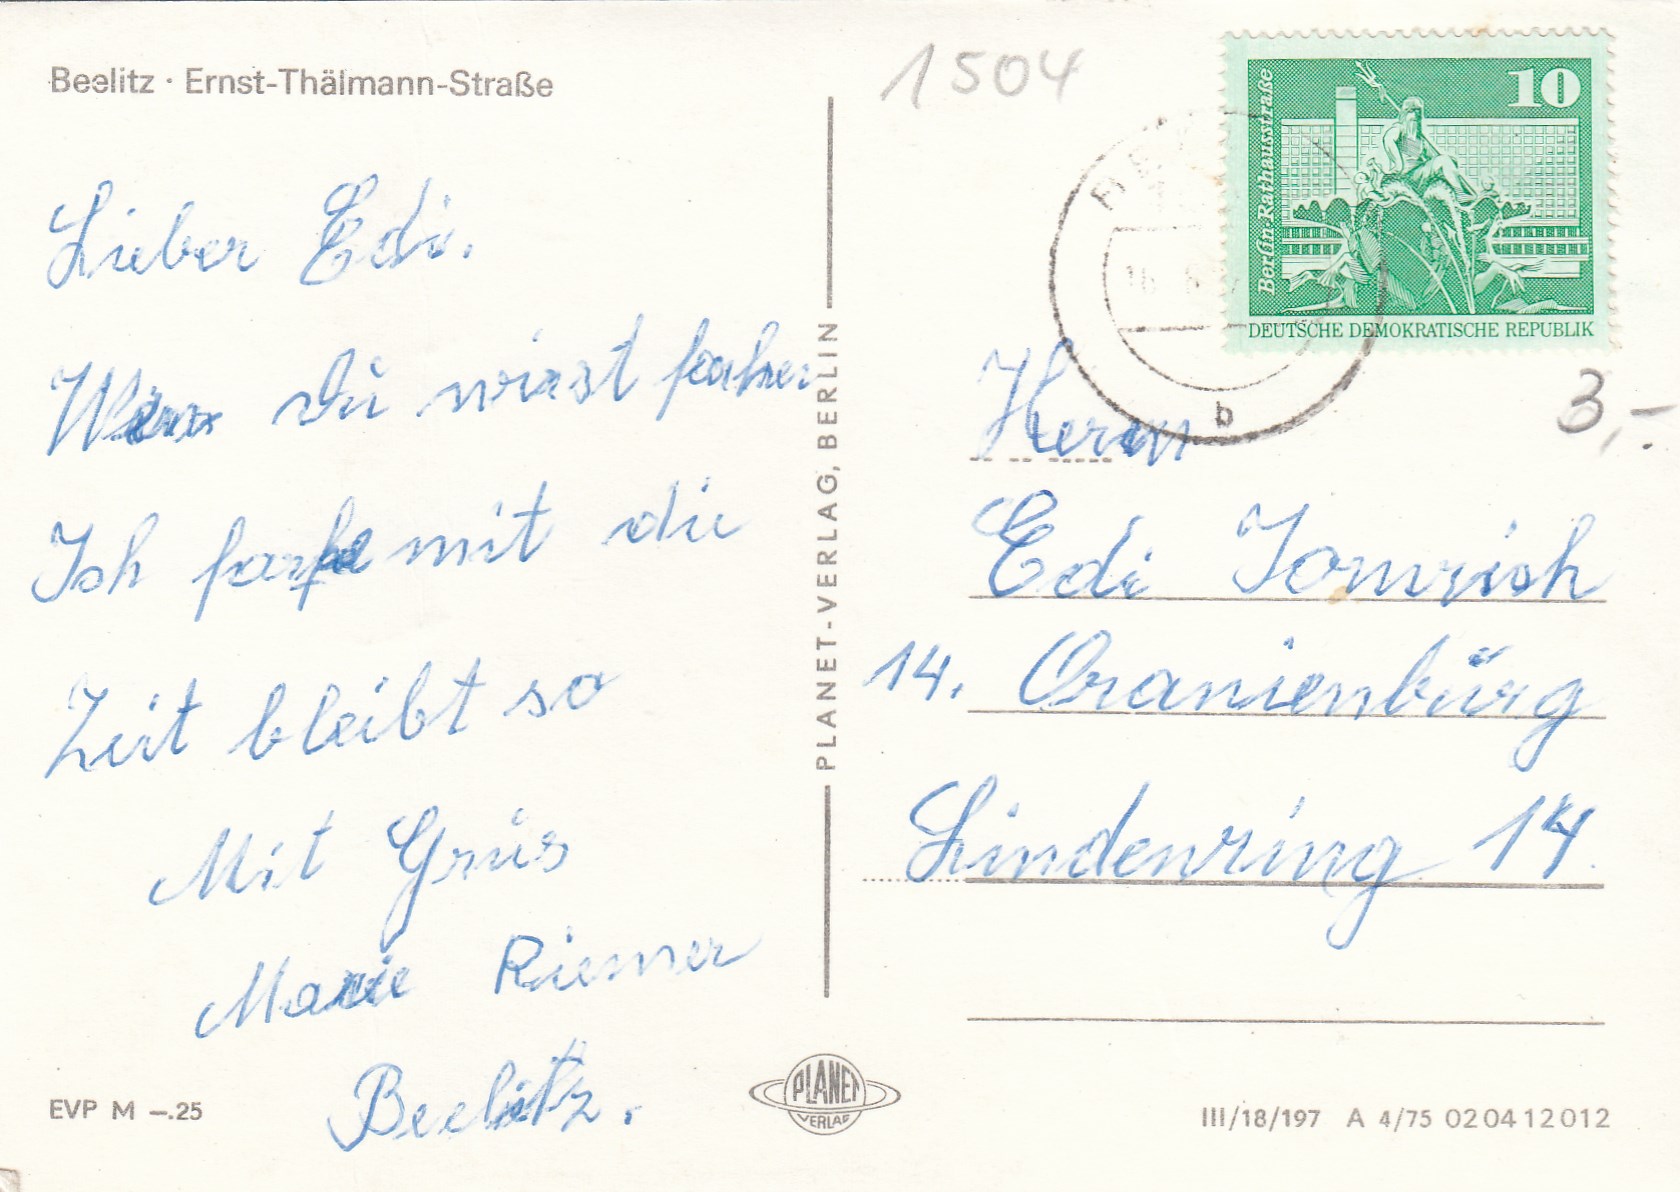 Beelitz · Ernst-Thälmann-Straße
1504
10
Berlin-Rathausstraße
DEUTSCHE DEMOKRATISCHE REPUBLIK
16. 6.
b
3,-
Lieber Edi.
Wenn Du wirst fahren
Ich fahre mit die
Zeit bleibt so
Mit Grüs
Marie Riemer
Beelitz.
PLANET-VERLAG, BERLIN
Herrn
Edi
14. Oranienbürg
Lindenring 14
EVP M –.25
PLANET
VERLAG
III/18/197 A 4/75 02 04 12 012